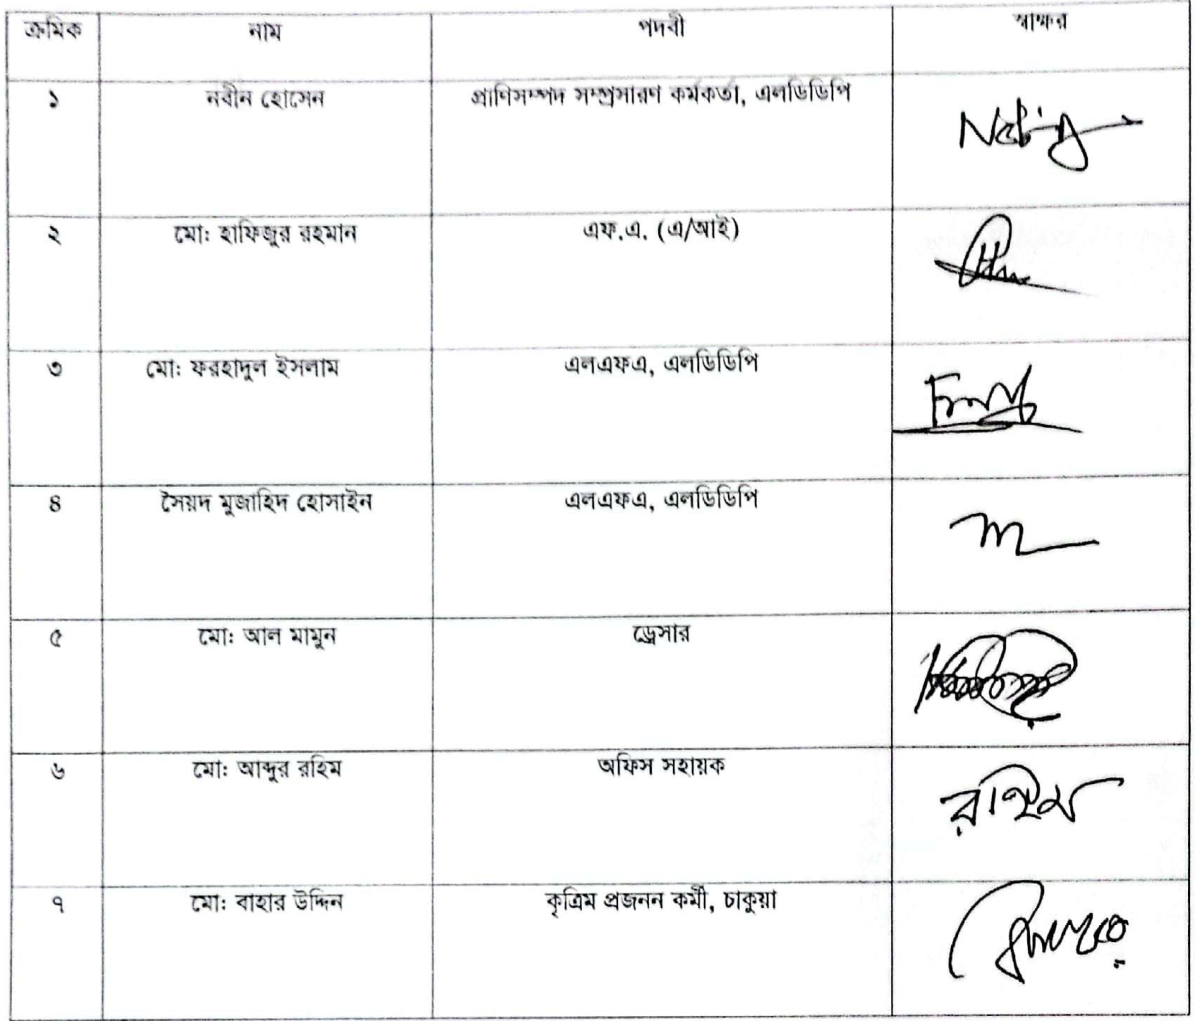 ক্রমিক নাম পদবী স্বাক্ষর
১ নবীন হোসেন প্রাণিসম্পদ সম্প্রসারণ কর্মকর্তা, এলডিডিপি
২ মো: হাফিজুর রহমান এফ.এ. (এ/আই)
৩ মো: ফরহাদুল ইসলাম এলএফএ, এলডিডিপি
৪ সৈয়দ মুজাহিদ হোসাইন এলএফএ, এলডিডিপি
৫ মো: আল মামুন ড্রেসার
৬ মো: আব্দুর রহিম অফিস সহায়ক রহিম
৭ মো: বাহার উদ্দিন কৃত্রিম প্রজনন কর্মী, চাকুয়া